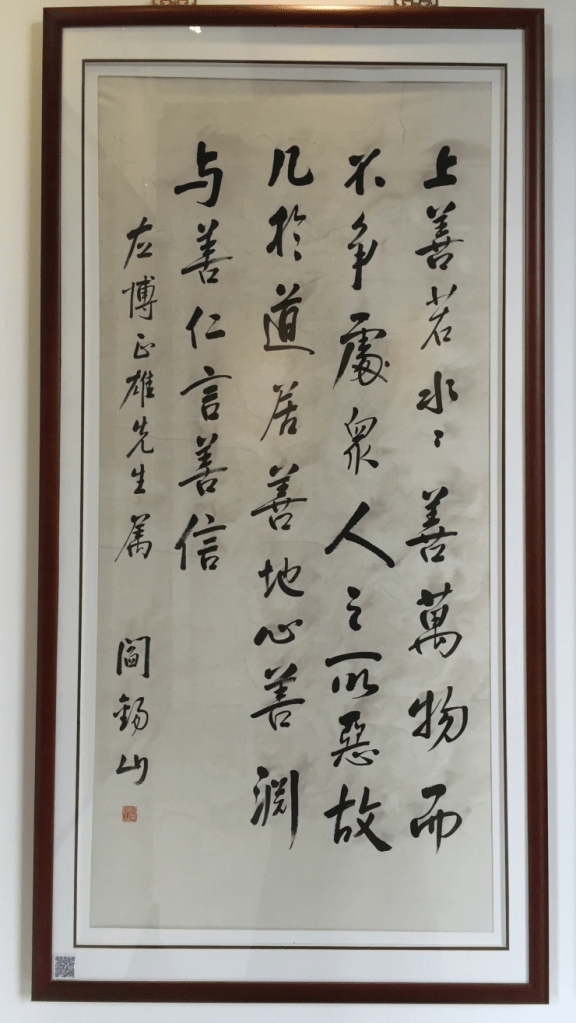 上善若水〻善萬物而
不争處衆人之所惡故
几於道居善地心善渊
与善仁言善信
左博正雄先生属
閻錫山